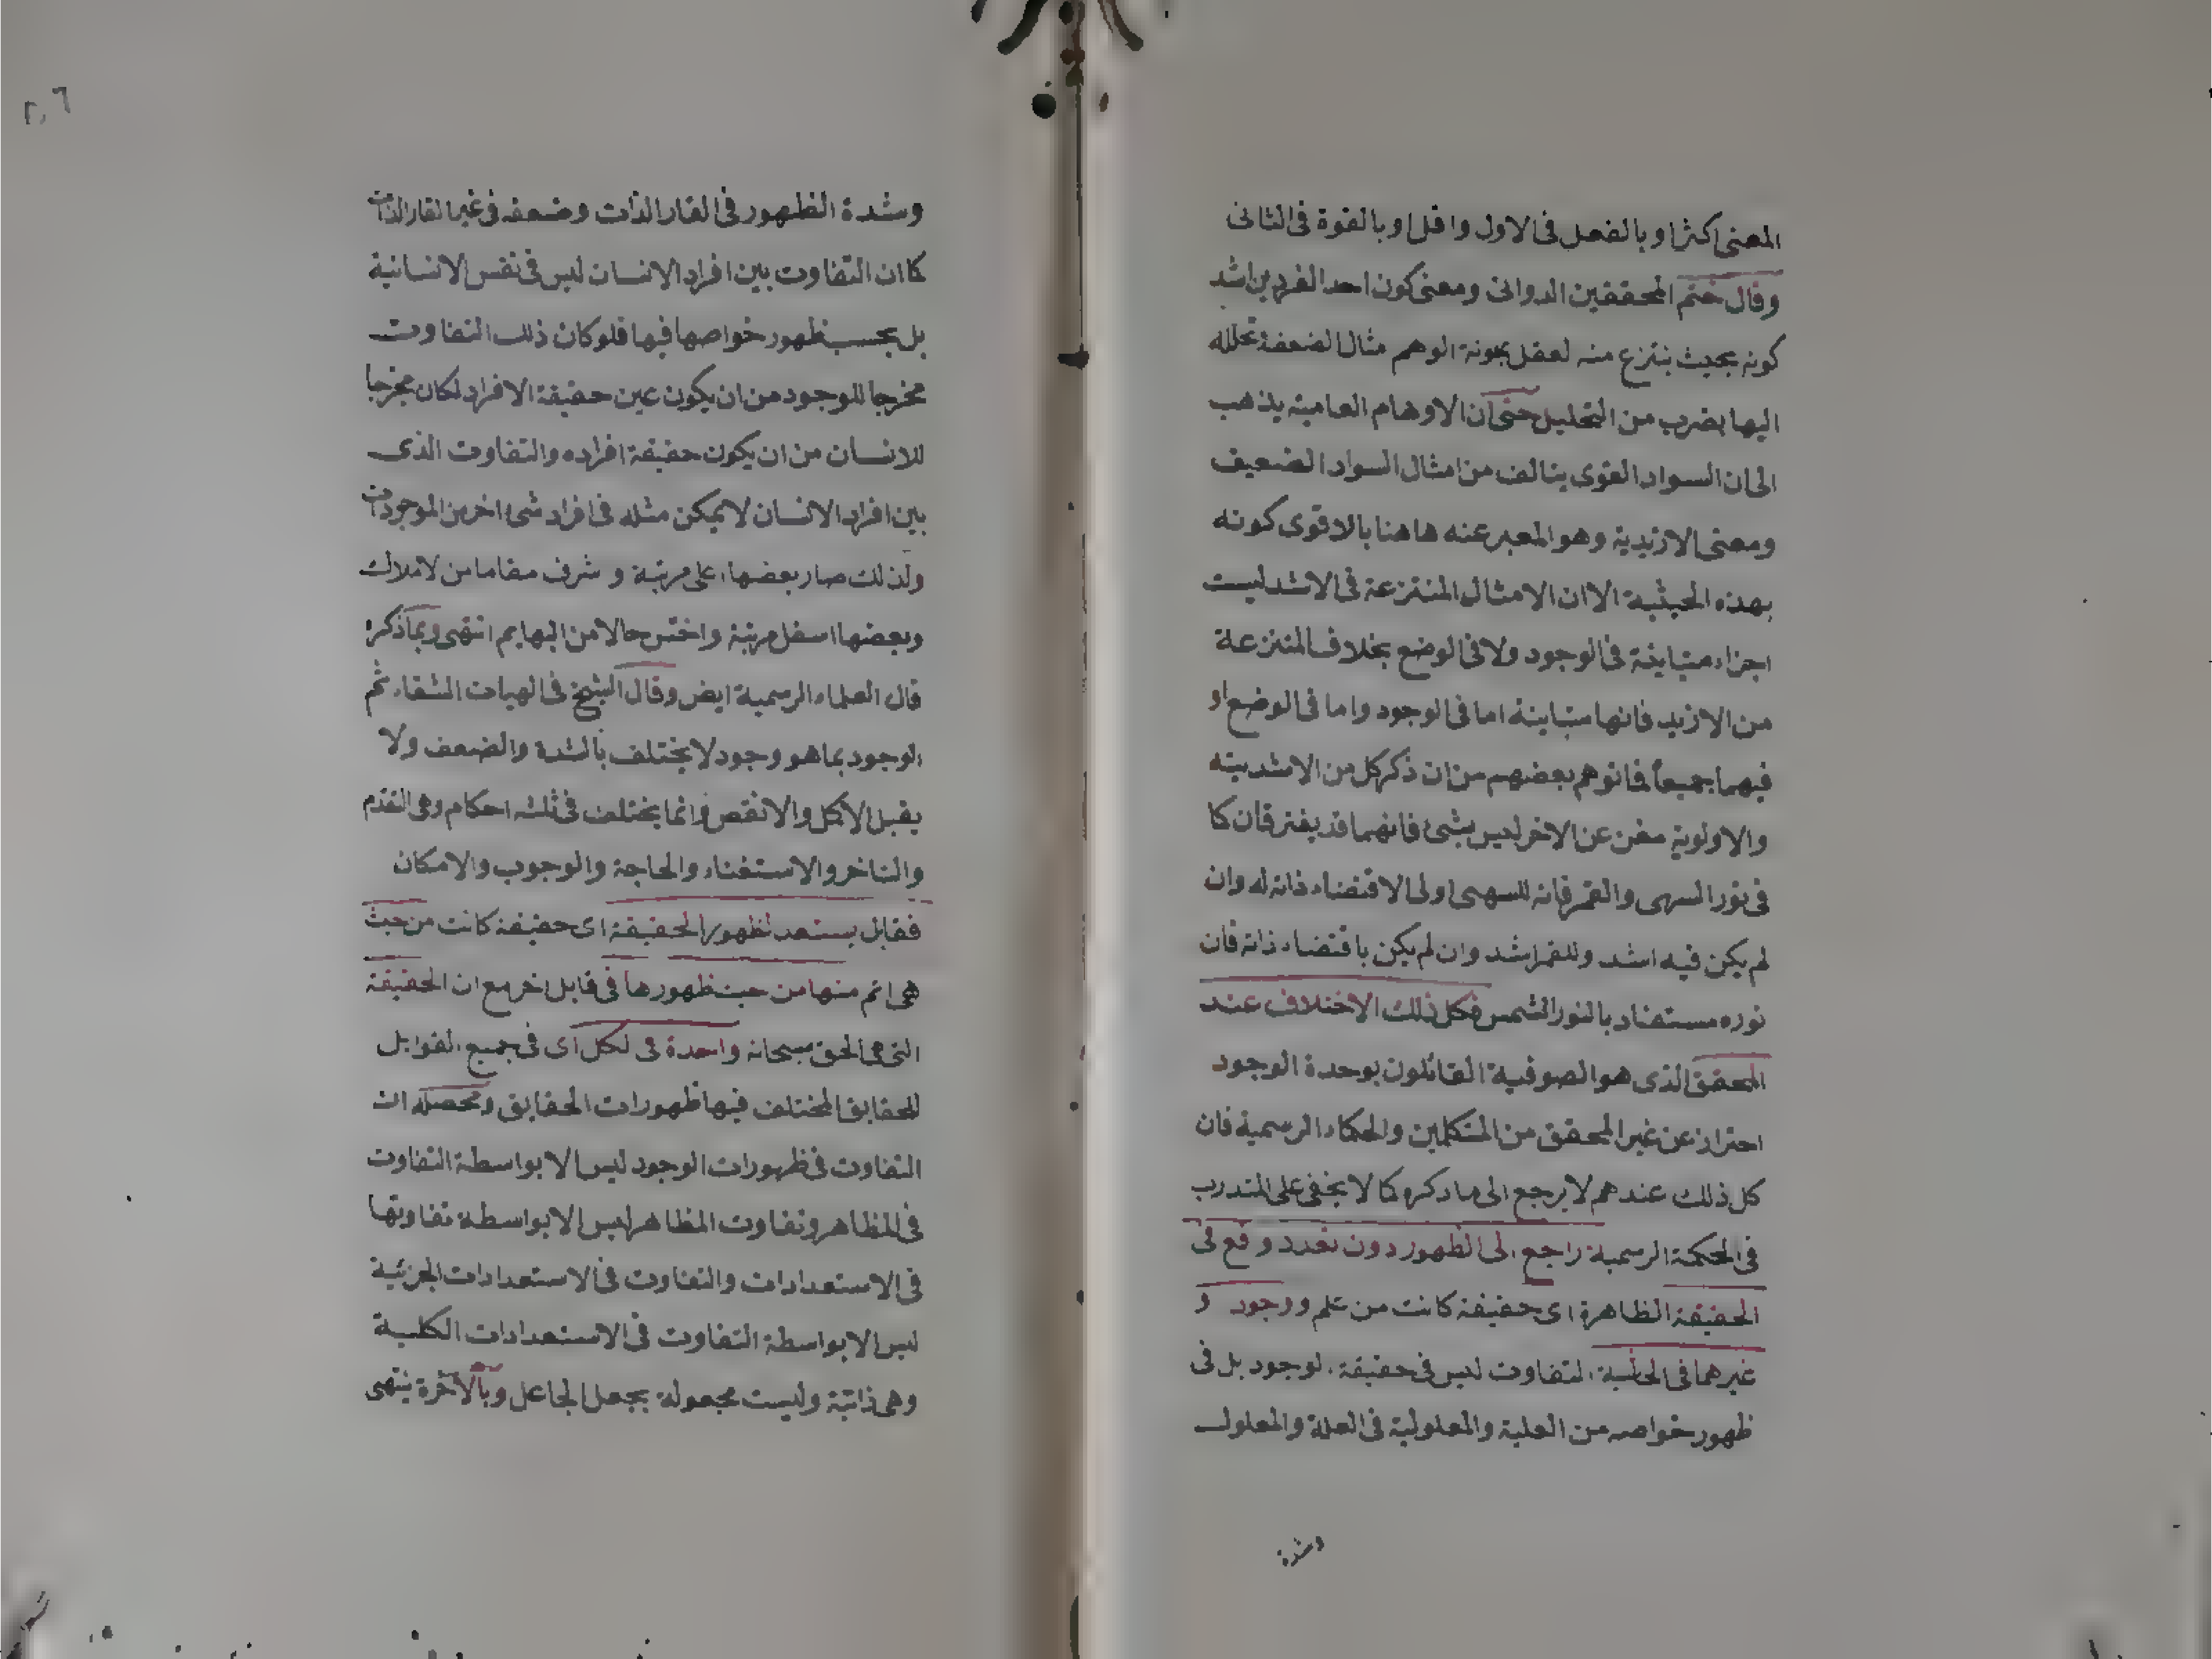 المعنى اكثر او بالفعل فى الاول واقل او بالقوة فى الثانى
وقال ختم المحققين الدوانى ومعنى كون احد الفردين اشد
كونه بحيث ينتزع منه لعقل بمونة الوهم مثال الضعفة تحلله
اليها بضرب من التحليل حتى ان الاوهام العامية يذهب
الى ان السواد القوى يتالف من امثال السواد الضعيف
ومعنى الازيدية وهو المعبر عنه هاهنا بالاقوى كونه
بهذه الحيثية الا ان الامثال المنتزعة فى الاشد ليست
اجزاء متباينة فى الوجود ولا فى الوضع بخلاف المنتزعة
من الازيد فانها متباينة اما فى الوجود واما فى الوضع او
فيهما جميعا فما توهم بعضهم من ان ذكر كل من الاشدية
والاولوية مغن عن الاخر ليس بشئ فانهما قد يفترقان كما
فى نور السهى والقمر فانه للسهى اولى لاقتضاء ذاته له وان
لم يكن فيه اشد وللقمر اشد وان لم يكن باقتضاء ذاته فان
نوره مستفاد بالنور الشمس فكل ذلك الاختلاف عند
المحقق الذى هو الصوفية القائلون بوحدة الوجود
احتراز عن غير المحقق من المتكلمين والحكماء الرسمية فان
كل ذلك عندهم لا يرجع الى ما ذكره كما لا يخفى على المتدرب
فى الحكمة الرسمية راجع الى الظهور دون تعدد وقع فى
الحقيقة الظاهرة اى حقيقة كانت من علم ووجود و
غيرهما فى الحاشية التفاوت ليس فى حقيقة الوجود بل فى
ظهور خواصه من العلية والمعلولية فى العلة والمعلول
وشدة
٢٠٦
وشدة الظهور فى القار الذات وضعفه فى غير القار الذات
كما ان التفاوت بين افراد الانسان ليس فى نفس الانسانية
بل بحسب ظهور خواصها فيها فلو كان ذلك التفاوت
مخرجا للوجود من ان يكون عين حقيقة الافراد لكان مخرجا
للانسان من ان يكون حقيقة افراده والتفاوت الذى
بين افراد الانسان لا يمكن مثله فى افراد شئ اخر من الموجودات
ولذلك صار بعضها اعلى مرتبة و شرف مقاما من لاملاك
وبعضها اسفل مرتبة واخس حالا من البهايم انتهى وبما ذكره
قال العلماء الرسمية ايض وقال الشيخ فى الهيات الشفاء ثم
الوجود بما هو وجود لا يختلف بالشدة والضعف ولا
يقبل الاكل والانقص وانما يختلف فى ثلثه احكام وهى التقدم
والتاخر والاستغناء والحاجة والوجوب والامكان
فقابل يستعد لظهور الحقيقة اى حقيقة كانت من حيث
هى اتم منها من حيث ظهورها فى قابل اخر مع ان الحقيقة
التى هى الحق سبحانه واحدة فى لكل اى فى جميع القوابل
للحقايق المختلف فيها ظهورات الحقايق ومحصله ان
التفاوت فى ظهورات الوجود ليس الا بواسطة التفاوت
فى المظاهر وتفاوت المظاهر ليس الا بواسطة تفاوتها
فى الاستعدادات والتفاوت فى الاستعدادات الجزئية
ليس الا بواسطة التفاوت فى الاستعدادات الكلية
وهى ذاتية وليست مجعولة بجعل الجاعل وبالآخرة ينتهى